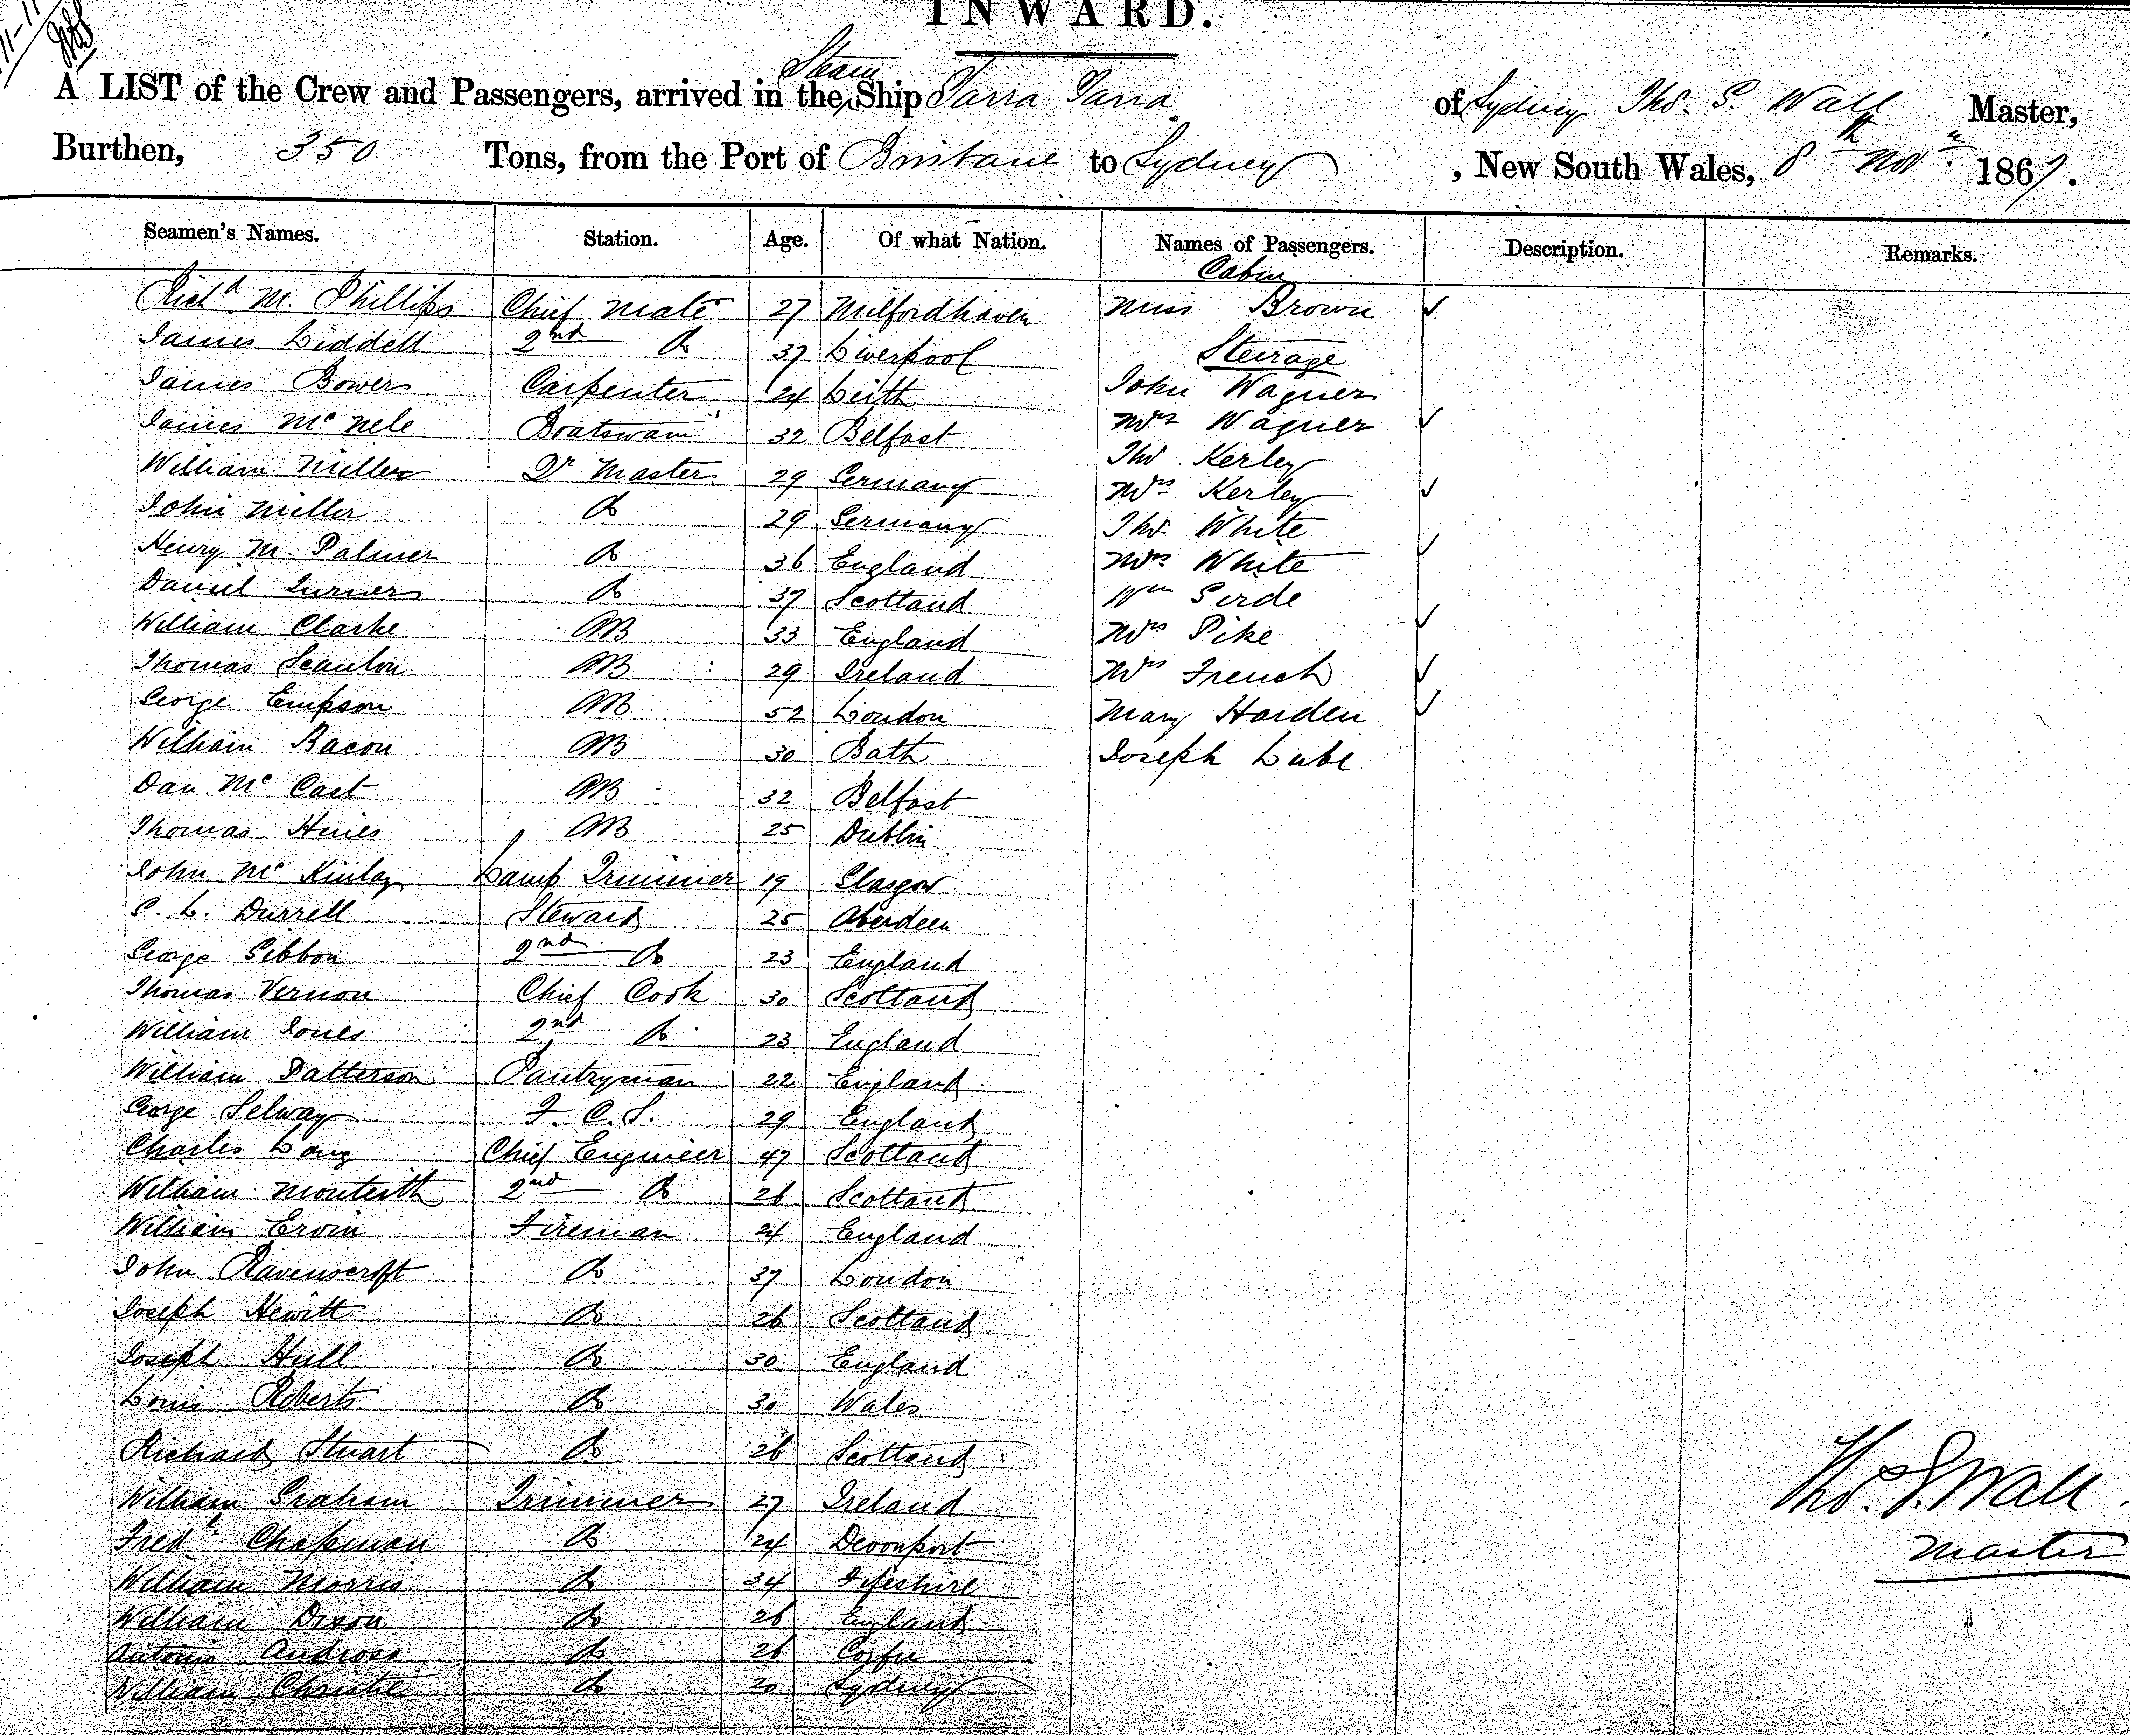 INWARD.
A LIST of the Crew and Passengers, arrived in the Steam Ship Yarra Yarra of Sydney Tho. S. Wall Master,
Burthen, 350 Tons, from the Port of Brisbane to Sydney, New South Wales, 8th Novr. 1867.
Seamen's Names. Station. Age. Of what Nation. Names of Passengers. Description. Remarks.
Cabin
Richd M. Phillips Chief Mate 27 Milfordhaven Miss Brown
James Liddell 2nd Do 37 Liverpool Steirage
James Bower Carpenter 24 Leith John Wagner
James McNele Boatswain 32 Belfast Mrs Wagner
William Miller Qr Master 29 Germany Tho. Kerley
John Miller Do 29 Germany Mrs Kerley
Henry M. Palmer Do 36 England Tho. White
Daniel Turner Do 37 Scotland Mrs White
William Clarke AB 33 England Wm
Thomas Scanlon AB 29 Ireland Mrs Pike
George Empson AB 52 London Mrs French
William Bacon AB 30 Bath Mary Harden
Dan Mc AB 32 Belfast Joseph
Thomas Hines AB 25 Dublin
John McKinlay Lamp Trimmer 19 Glasgow
L. Durrell Steward 25 Aberdeen
George Gibbon 2nd Do 23 England
Thomas Vernon Chief Cook 30 Scotland
William Jones 2nd Do 23 England
William Patterson Pantryman 22 England
George Selway F. C. S. 29 England
Charles Lang Chief Engineer 47 Scotland
William Monteith 2nd Do 26 Scotland
William Ervin Fireman 24 England
John Ravenscroft Do 37 London
Joseph Hewitt Do 26 Scotland
Joseph Hull Do 30 England
Louis Roberts Do 30 Wales
Richard Stuart Do 26 Scotland
William Graham Trimmer 27 Ireland
Fredk Chapman Do 24 Devonport
William Morris Do 34 Fifeshire
William Dixon Do 26 England
Antonio Andross Do 26 Corfu
William Christie Do 20 Sydney
Tho. S. Wall
Master